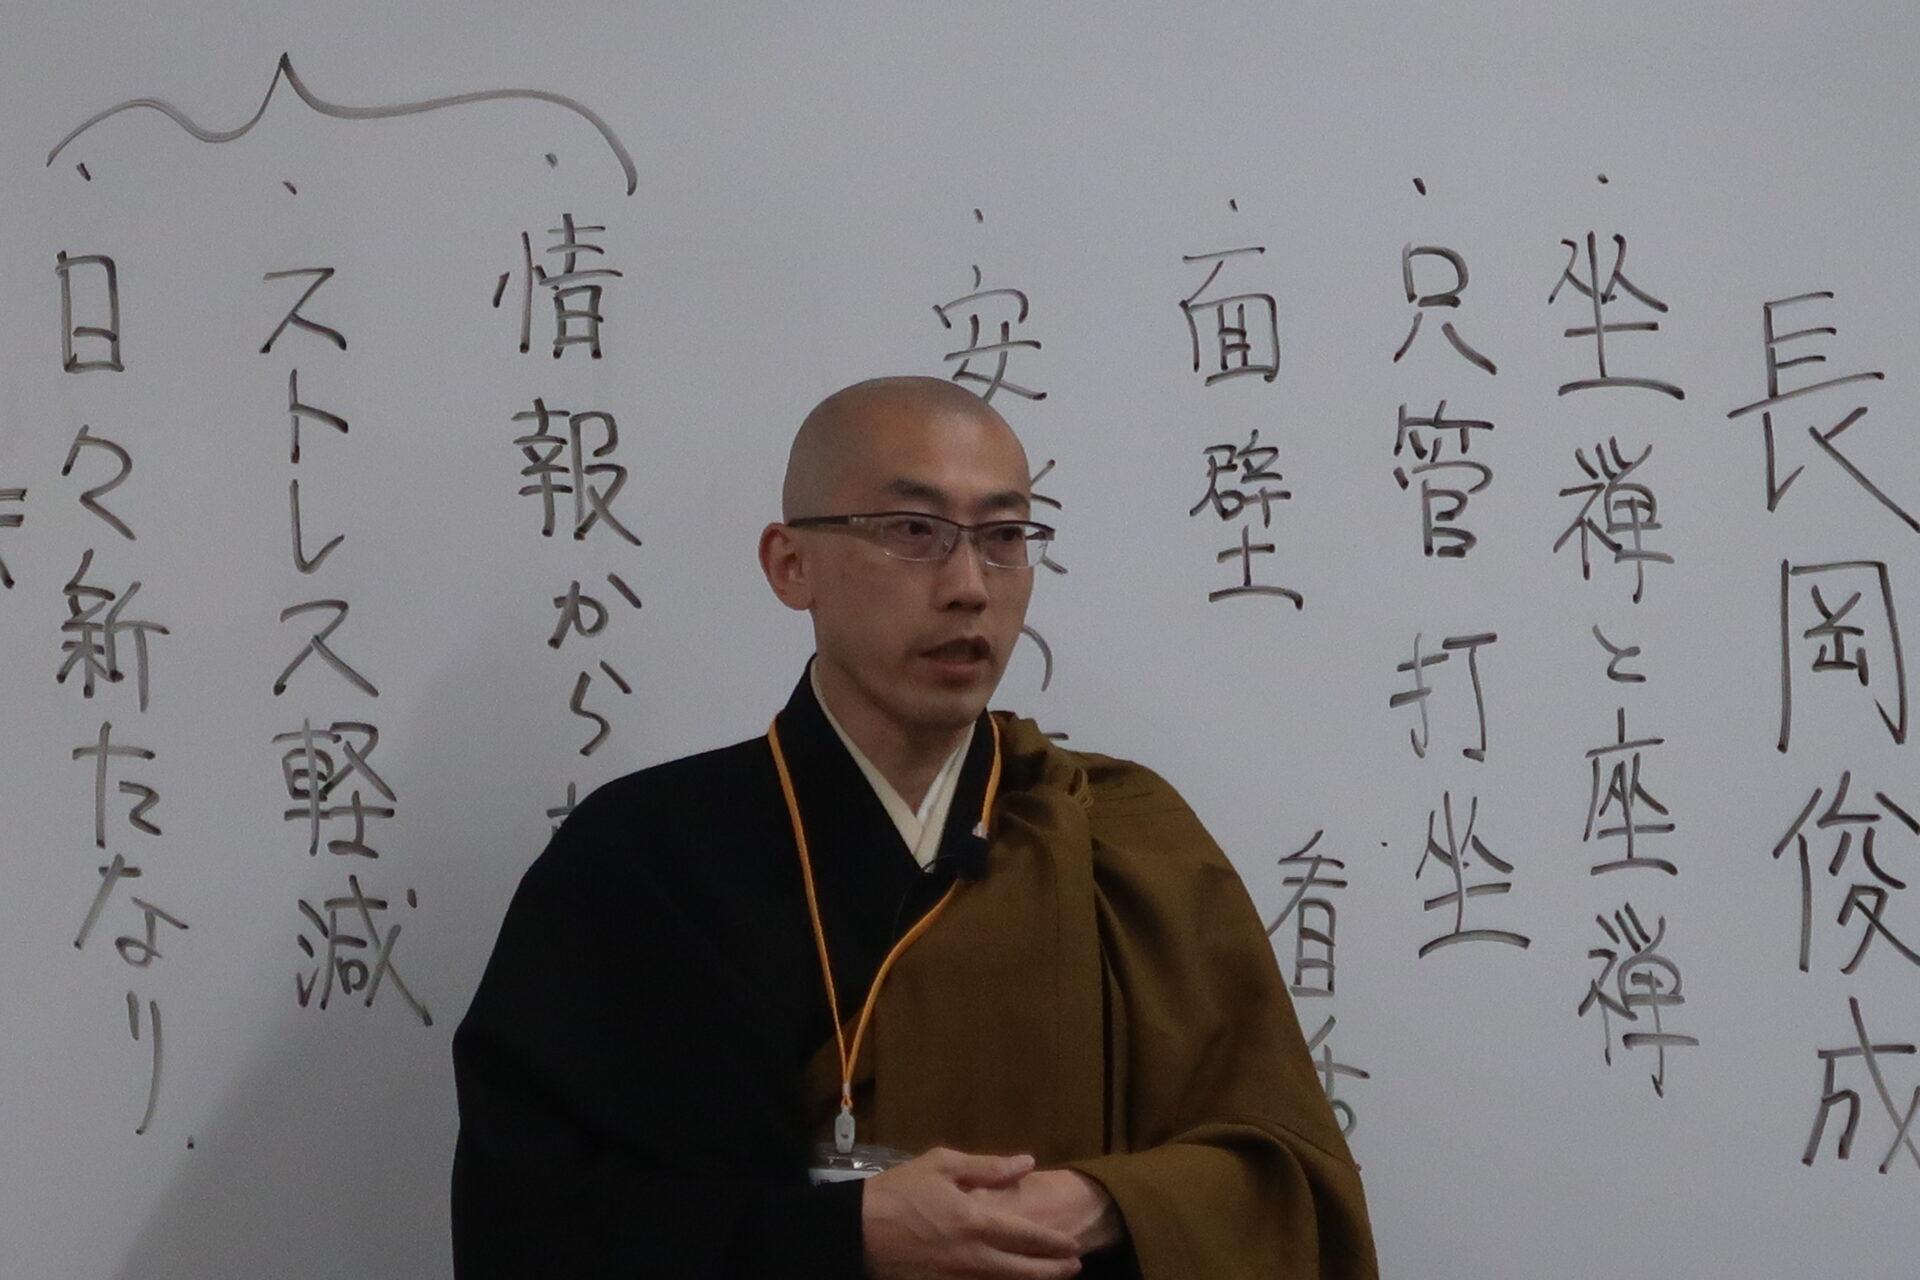 長岡俊成
・坐禅と座禅
・只管打坐
看
・面壁
・安
・情報から
・ストレス軽減
・日々新たなり.